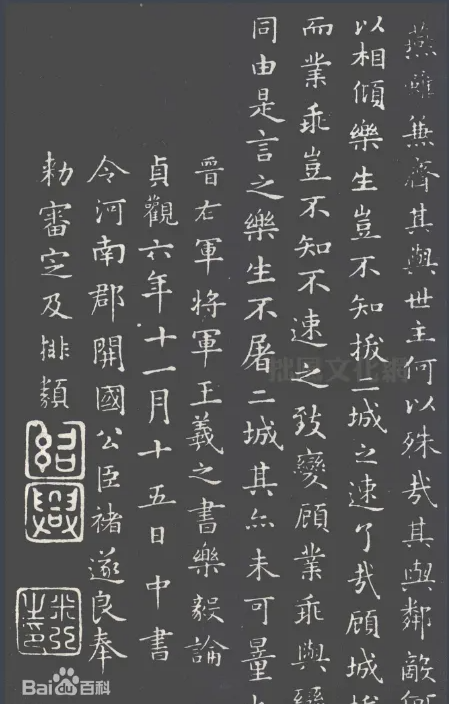 燕雖兼齊其與世主何以殊哉其與鄰敵何
以相傾樂生豈不知拔二城之速了哉顧城拔
而業乖豈不知不速之致變顧業乖與變
同由是言之樂生不屠二城其亦未可量也
晉右軍將軍王羲之書樂毅論
貞觀六年十一月十五日中書
令河南郡開國公臣褚遂良奉
勑審定及排類
紹興
拙風文化網
Bai百科